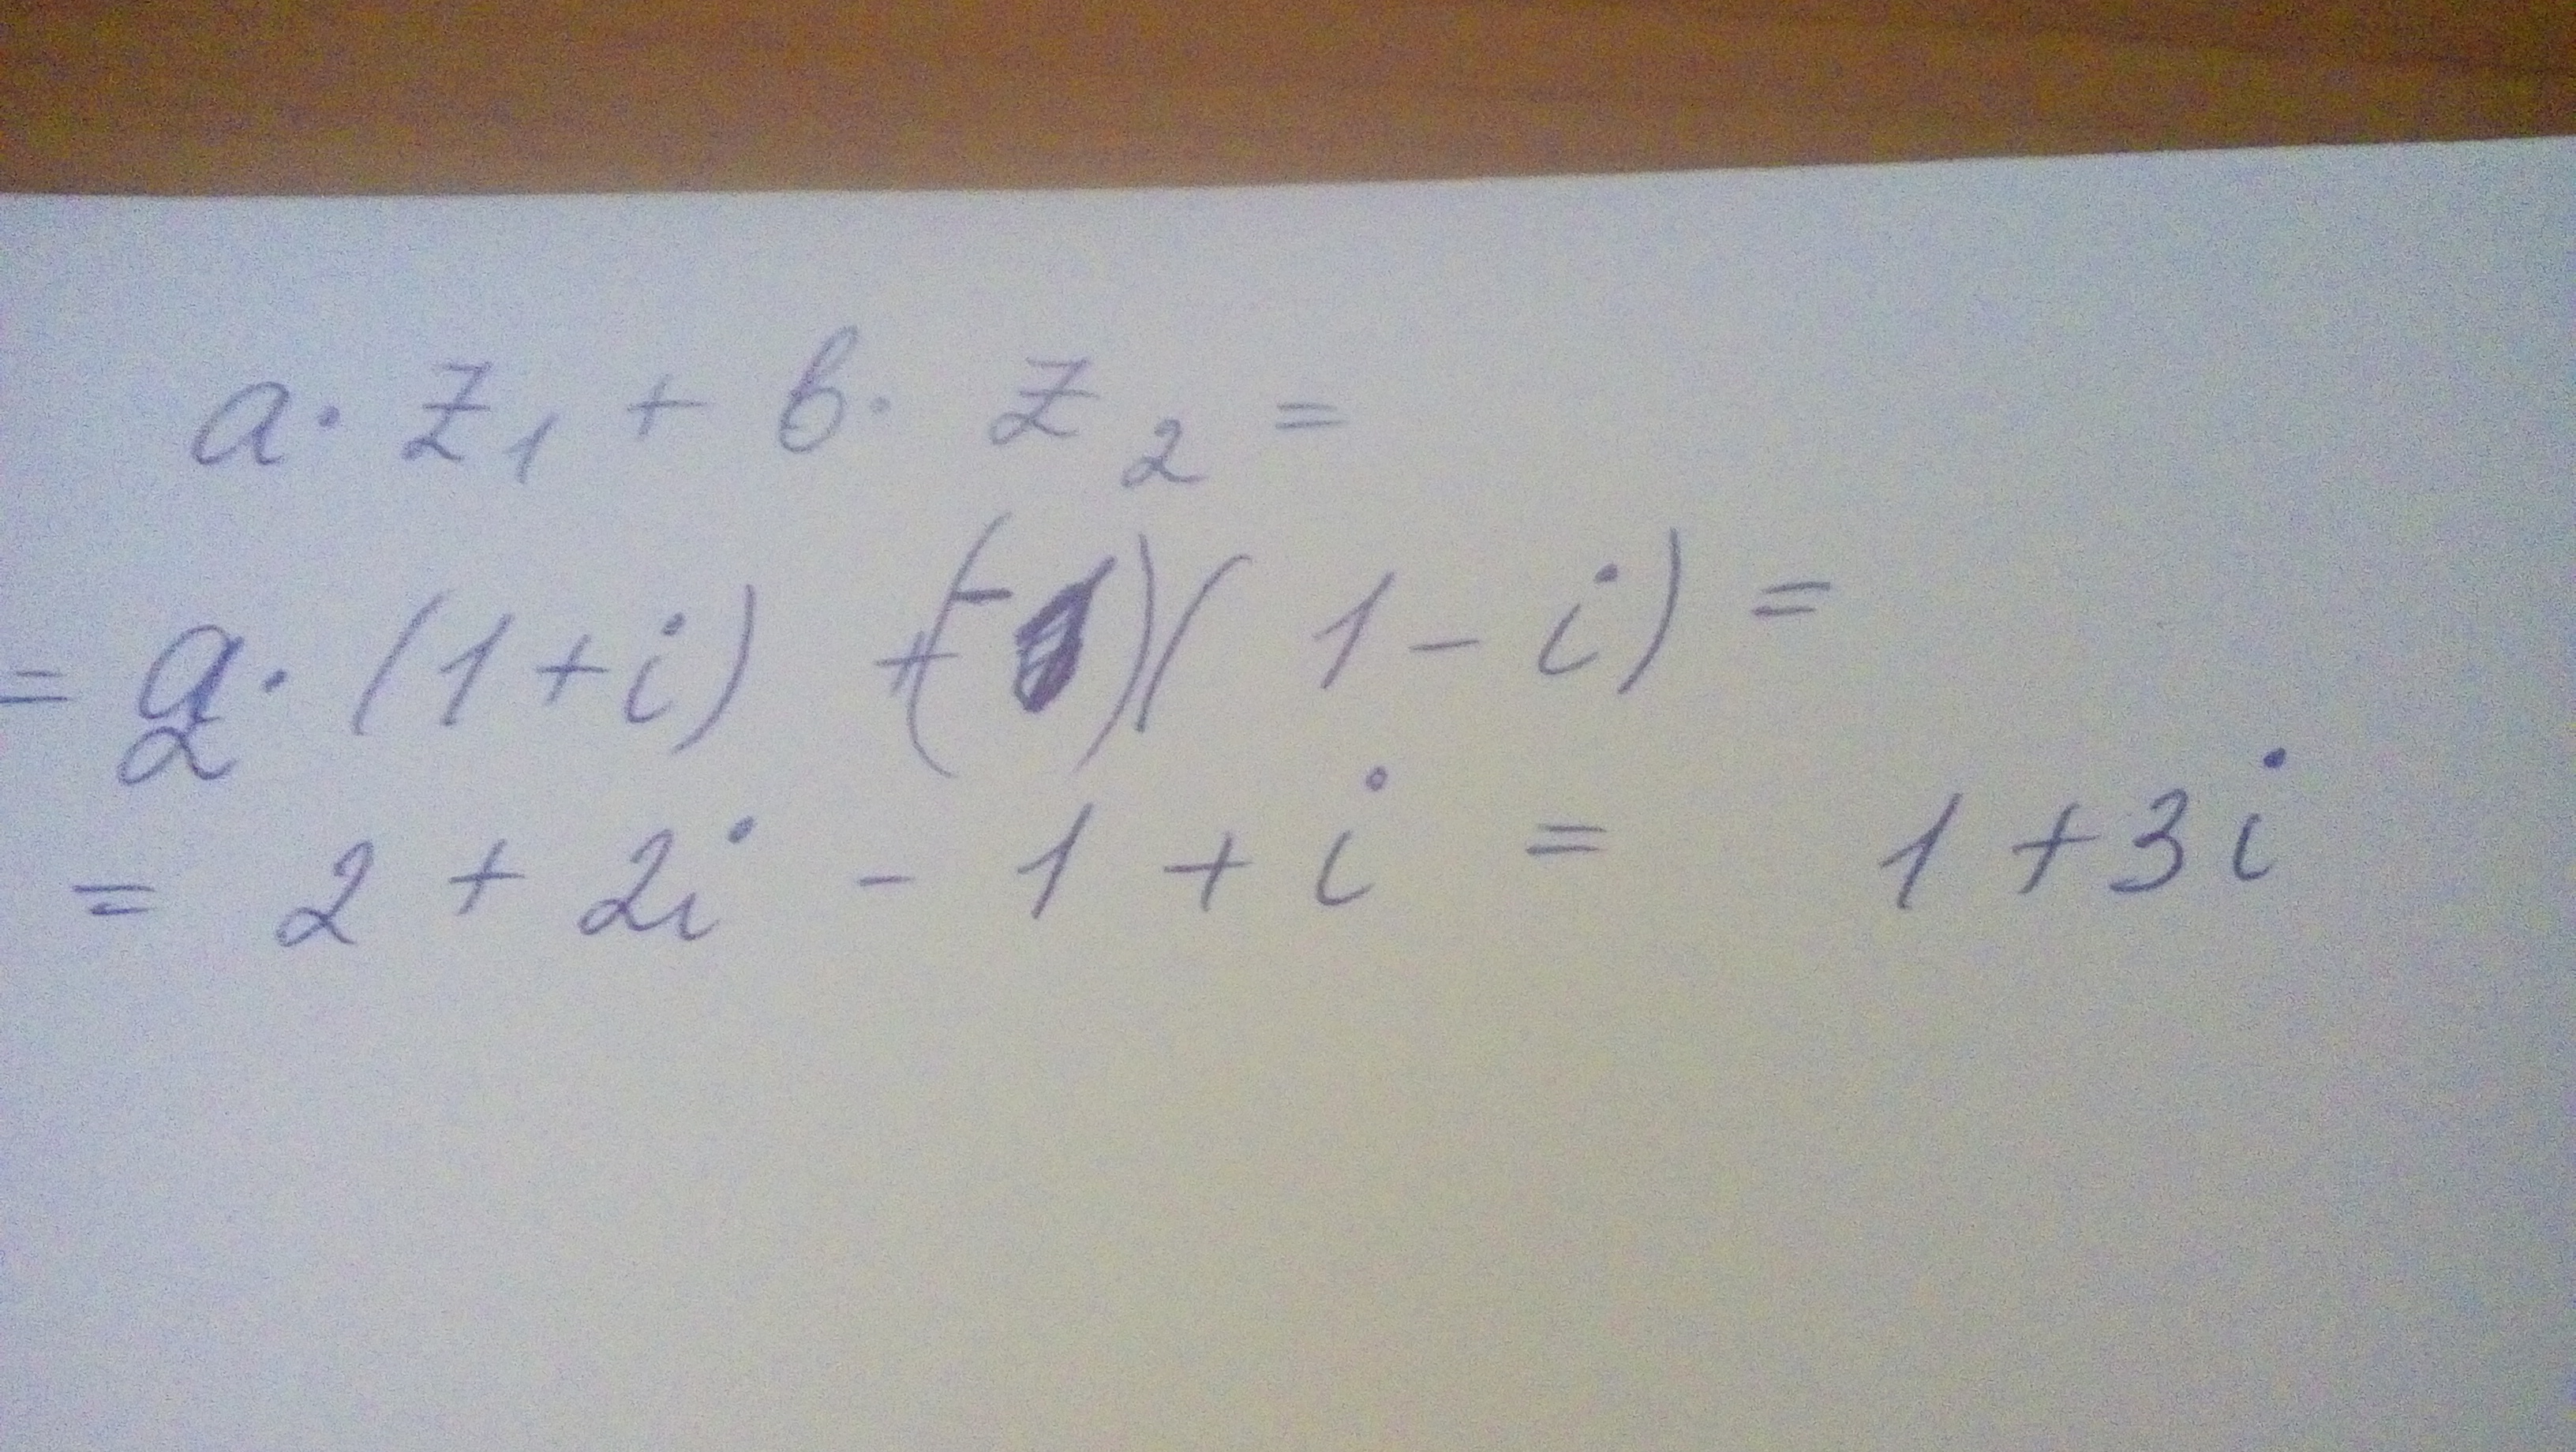 a · z₁ + b · z₂ =
= 2 · (1 + i) + (-1)(1 - i) =
= 2 + 2i - 1 + i = 1 + 3i